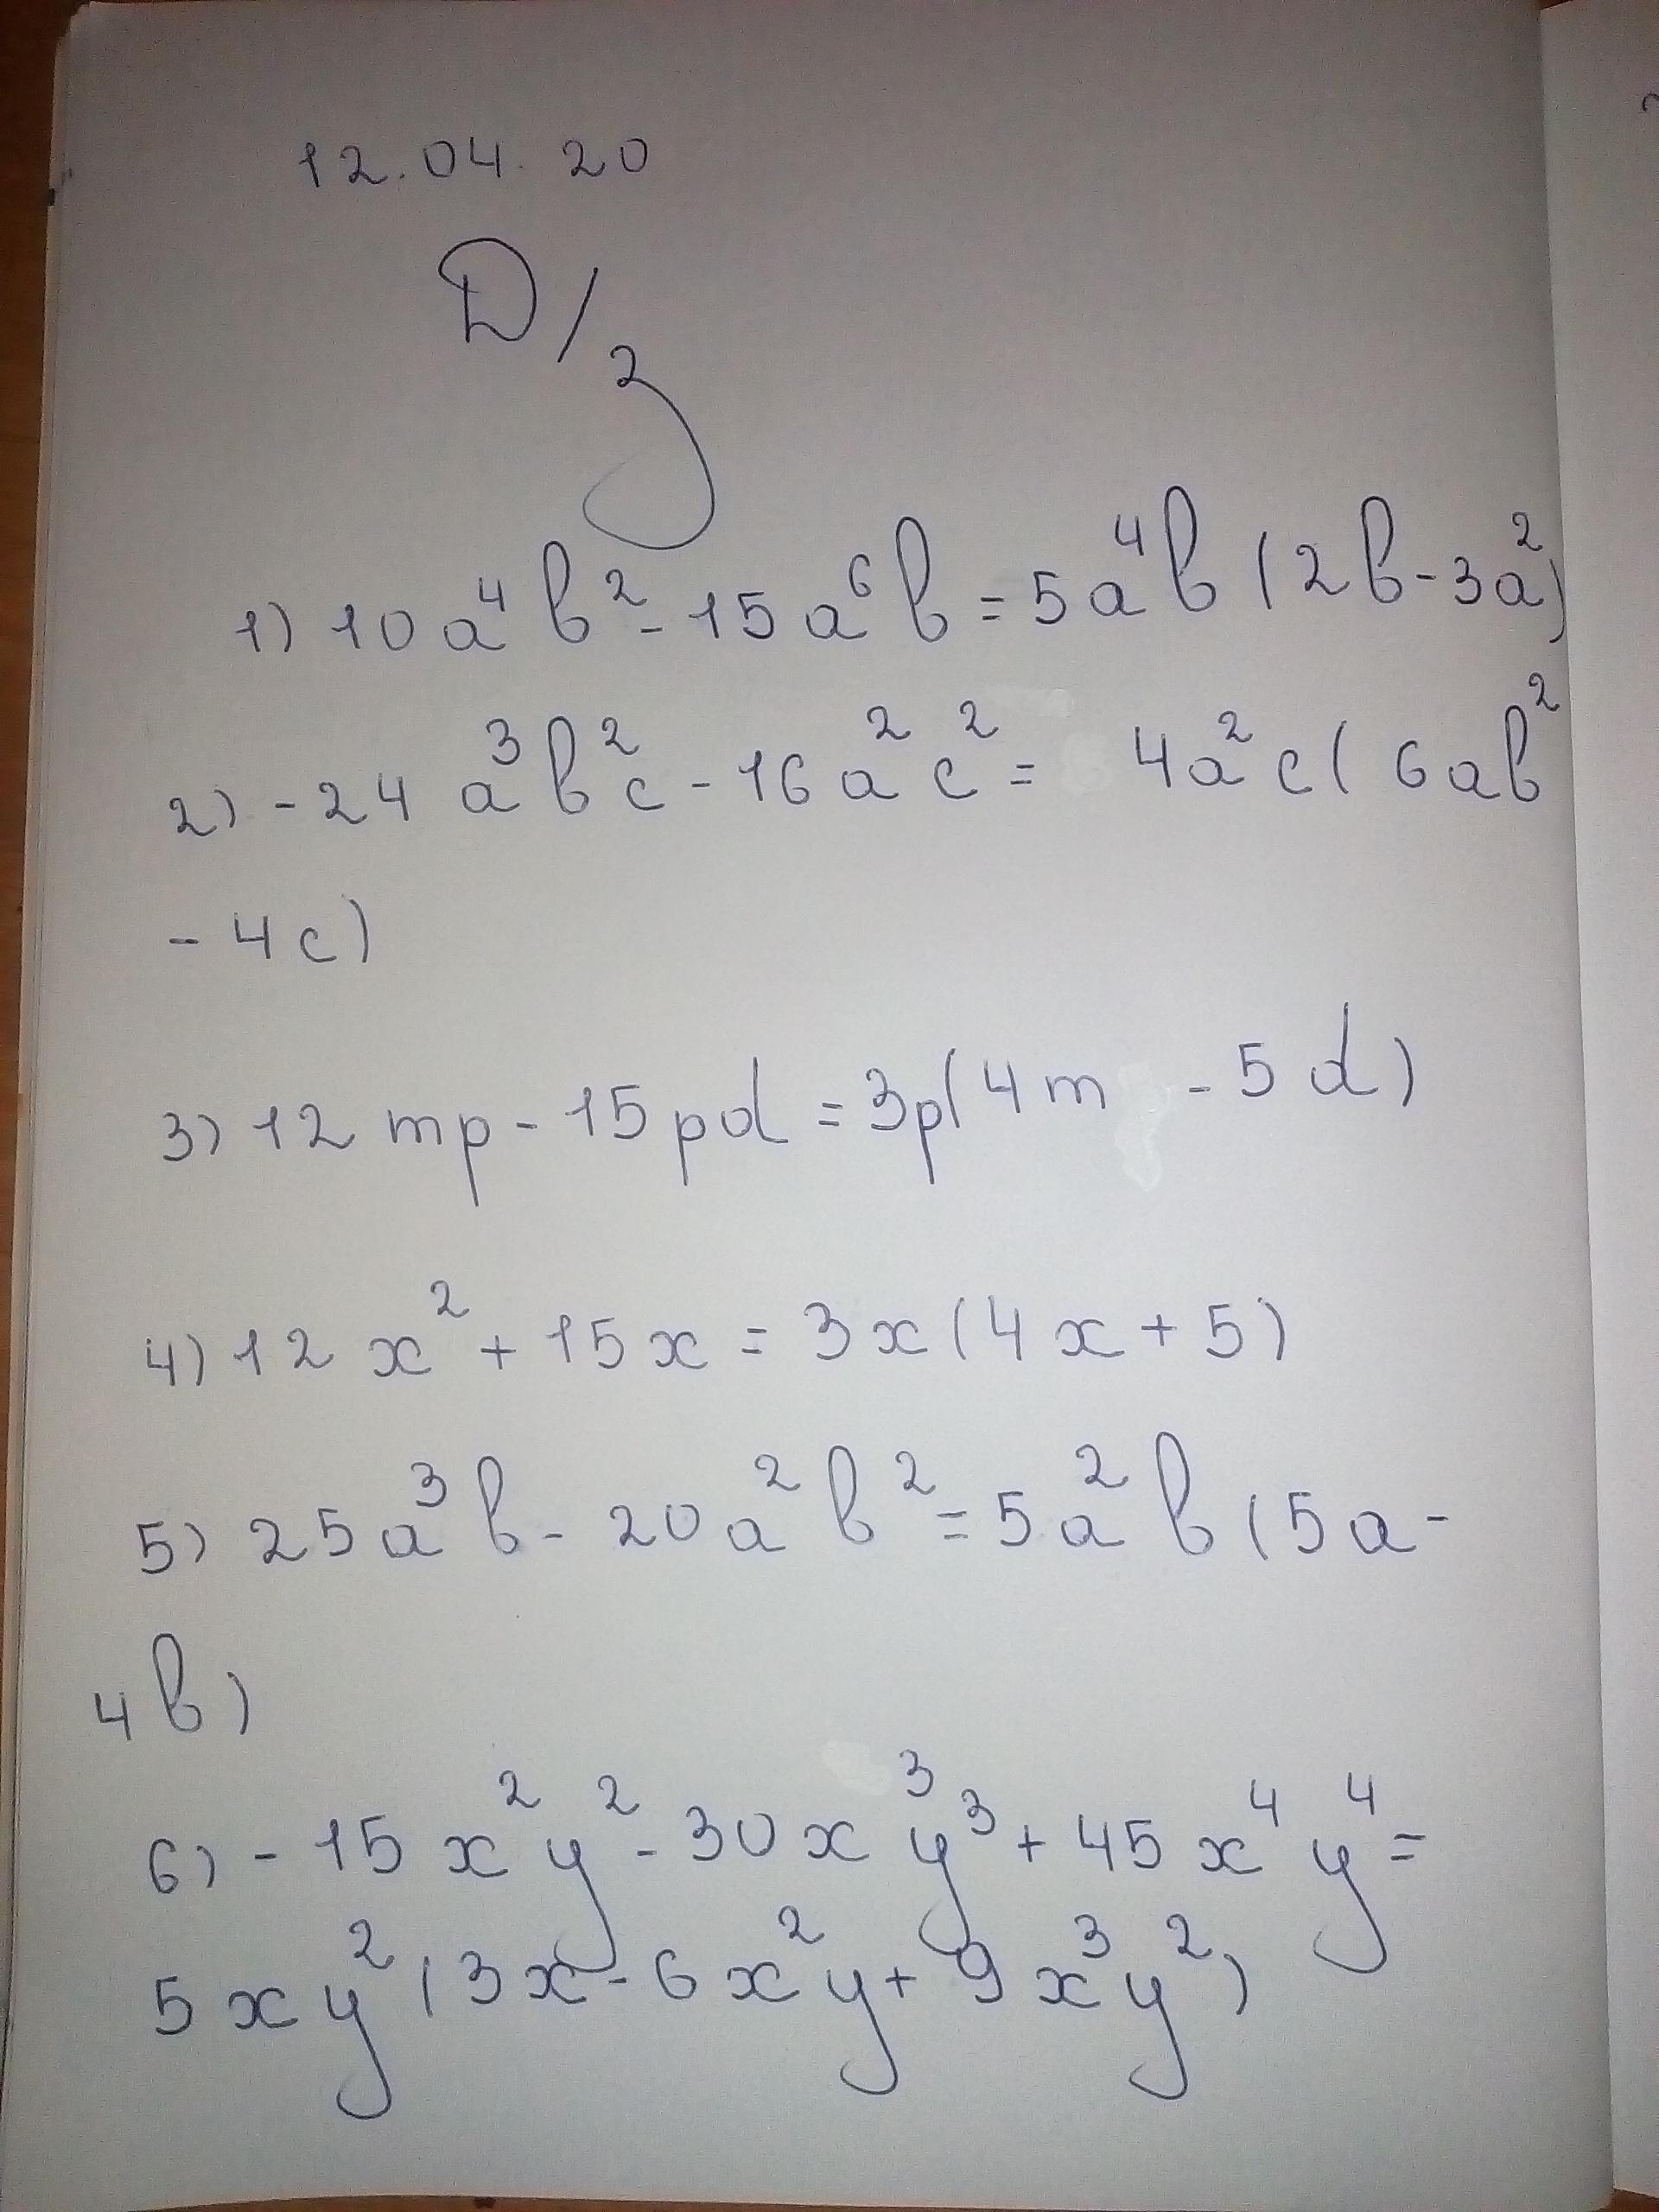 12.04.20
D/з
1) 10a⁴b² - 15a⁶b = 5a⁴b (2b - 3a²)
2) - 24 a³b²c - 16a²c² = 4a²c( 6ab²
- 4c)
3) 12 mp - 15pd = 3p(4m - 5d)
4) 12x² + 15x = 3x(4x + 5)
5) 25a³b - 20a²b² = 5a²b (5a -
4b)
6) - 15x²y² - 30x³y³ + 45x⁴y⁴ =
5xy² (3x - 6x²y + 9x³y²)